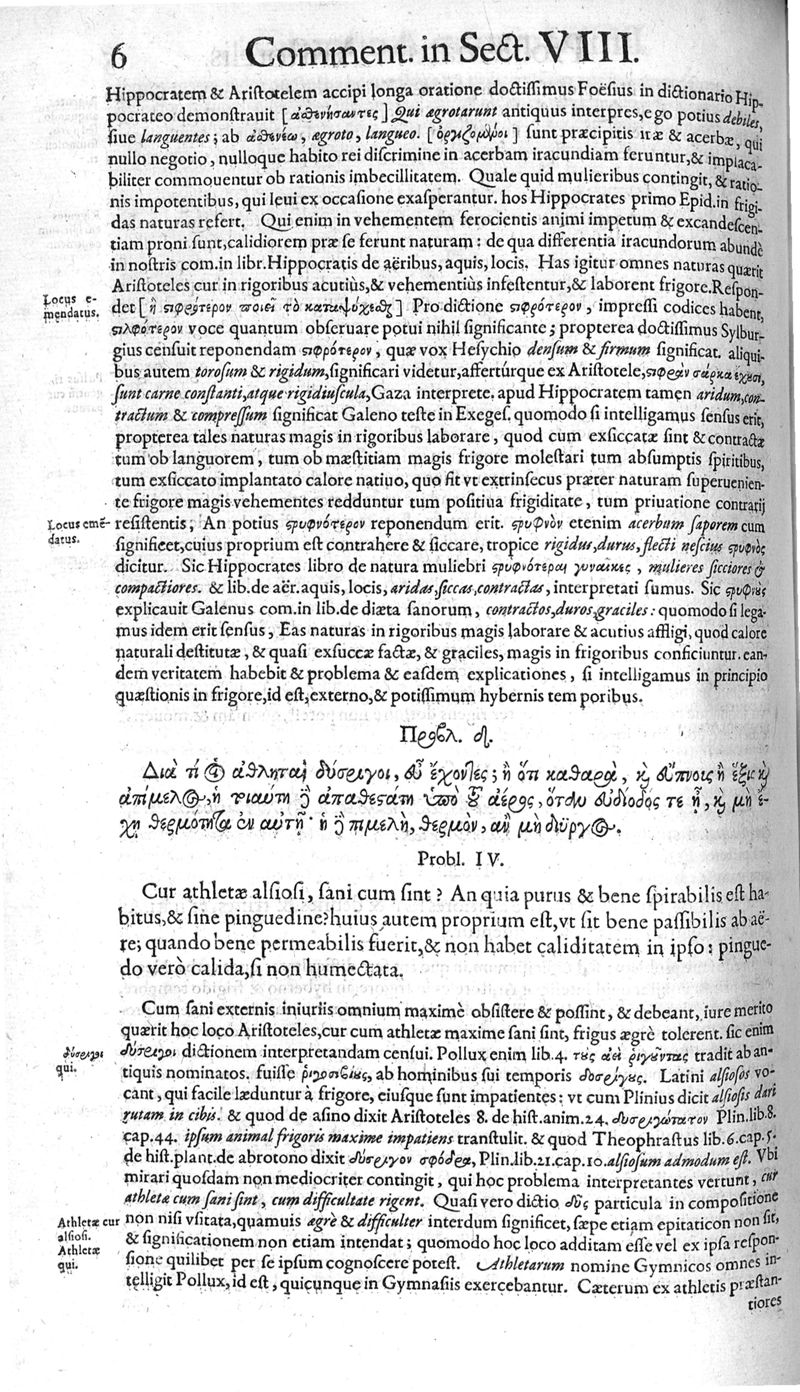 6 Comment. in Sect. VIII.
Hippocratem & Aristotelem accipi longa oratione doctissimus Foësius in dictionario Hip-
pocrateo demonstrauit [ἀσθενήσαντες] Qui ægrotarunt antiquus interpres, ego potius debiles,
siue languentes; ab ἀσθενέω, ægroto, langueo. [ὀργιζόμενοι] sunt præcipitis iræ & acerbæ, qui
nullo negotio, nulloque habito rei discrimine in acerbam iracundiam feruntur, & implaca-
biliter commouentur ob rationis imbecillitatem. Quale quid mulieribus contingit, & ratio-
nis impotentibus, qui leui ex occasione exasperantur. hos Hippocrates primo Epid. in frigi-
das naturas refert. Qui enim in vehementem ferocientis animi impetum & excandescen-
tiam proni sunt, calidiorem præ se ferunt naturam: de qua differentia iracundorum abundè
in nostris com. in libr. Hippocratis de aëribus, aquis, locis. Has igitur omnes naturas quærit
Aristoteles cur in rigoribus acutiùs, & vehementiùs infestentur, & laborent frigore. Respon-
Locus e-
mendatus.
det [ἢ στιφρότερον ποιεῖ τὸ καταψύχεσθαι] Pro dictione στιφρότερον, impressi codices habent,
στιλφότερον voce quantum obseruare potui nihil significante; propterea doctissimus Sylbur-
gius censuit reponendam στιφρότερον, quæ vox Hesychio densum & firmum significat. aliqui-
bus autem torosum & rigidum, significari videtur, affertúrque ex Aristotele, στιφρὰν σάρκα ἔχουσι,
sunt carne constanti, atque rigidiuscula, Gaza interprete. apud Hippocratem tamen aridum, con-
tractum & compressum significat Galeno teste in Exeges. quomodo si intelligamus sensus erit,
propterea tales naturas magis in rigoribus laborare, quod cum exsiccatæ sint & contractæ
tum ob languorem, tum ob mæstitiam magis frigore molestari tum absumptis spiritibus,
tum exsiccato implantato calore natiuo, quo fit vt extrinsecus præter naturam superuenien-
te frigore magis vehementes reddantur tum positiua frigiditate, tum priuatione contrarij
Locus emē-
datus.
resistentis; An potius στρυφνότερον reponendum erit. στρυφνὸν etenim acerbum saporem cum
significet, cuius proprium est contrahere & siccare, tropice rigidus, durus, flecti nescius στρυφνὸς
dicitur. Sic Hippocrates libro de natura muliebri στρυφνότεραι γυναῖκες, mulieres sicciores &
compactiores. & lib. de aër. aquis, locis, aridas, siccas, contractas, interpretati sumus. Sic στρυφνοὺς
explicauit Galenus com. in lib. de diæta sanorum, contractos, duros, graciles: quomodo si lega-
mus idem erit sensus, Eas naturas in rigoribus magis laborare & acutius affligi, quod calore
naturali destitutæ, & quasi exsuccæ factæ, & graciles, magis in frigoribus conficiuntur. ean-
dem veritatem habebit & problema & easdem explicationes, si intelligamus in principio
quæstionis in frigore, id est, externo, & potissimum hybernis temporibus.
Προβλ. δ.
Διὰ τί οἱ ἀθληταὶ δύσριγοι, εὖ ἔχοντες; ἢ ὅτι καθαρὰ, καὶ εὔπνοις ἡ ἕξις καὶ
ἀπίμελος, ἡ τοιαύτη δὲ ἀπαθεστάτη ὑπὸ τοῦ ἀέρος, ὅταν εὐδίοδός τε ᾖ, καὶ μὴ ἔ-
χῃ θερμότητα ἐν αὑτῇ· ἡ δὲ πιμελὴ, θερμὸν, ἂν μὴ δίϋργος.
Probl. IV.
Cur athletæ alsiosi, sani cum sint? An quia purus & bene spirabilis est ha-
bitus, & sine pinguedine? huius autem proprium est, vt sit bene passibilis ab aë-
re; quando bene permeabilis fuerit, & non habet caliditatem in ipso: pingue-
do verò calida, si non humectata.
Cum sani externis iniuriis omnium maximè obsistere & possint, & debeant, iure merito
quærit hoc loco Aristoteles, cur cum athletæ maxime sani sint, frigus ægrè tolerent. sic enim
δύσριγοι
qui.
δύσριγοι dictionem interpretandam censui. Pollux enim lib. 4. τοὺς ἀεὶ ῥιγῶντας tradit ab an-
tiquis nominatos. fuisse ab hominibus sui temporis δυσρίγους. Latini alsiosos vo-
cant, qui facile læduntur à frigore, eiusque sunt impatientes: vt cum Plinius dicit alsiosis dari
rutam in cibis. & quod de asino dixit Aristoteles 8. de hist. anim. 24. δυσριγώτατον Plin. lib. 8.
cap. 44. ipsum animal frigoris maxime impatiens transtulit. & quod Theophrastus lib. 6. cap. 5.
de hist. plant. de abrotono dixit δύσριγον σφόδρα, Plin. lib. 21. cap. 10. alsiosum admodum est. Vbi
mirari quosdam non mediocriter contingit, qui hoc problema interpretantes vertunt, cur
athletæ cum sani sint, cum difficultate rigent. Quasi vero dictio δὺς particula in compositione
Athletæ cur
alsiosi.
Athletæ
qui.
non nisi vsitata, quamuis ægrè & difficulter interdum significet, sæpe etiam epitaticon non sit,
& significationem non etiam intendat; quomodo hoc loco additam esse vel ex ipsa respon-
sione quilibet per se ipsum cognoscere potest. Athletarum nomine Gymnicos omnes in-
telligit Pollux, id est, quicunque in Gymnasiis exercebantur. Cæterum ex athletis præstan-
tiores